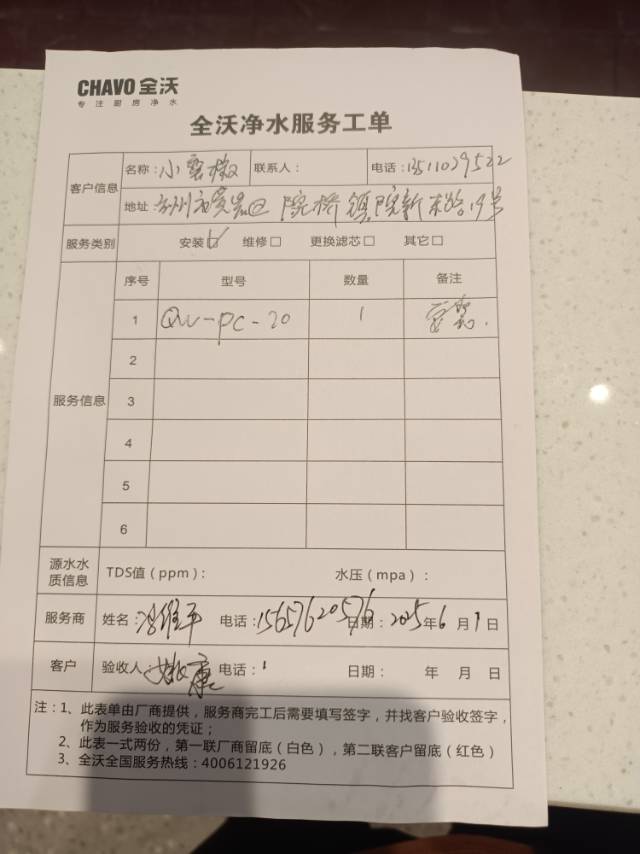 CHAVO 全沃
专注厨房净水
全沃净水服务工单
客户信息 名称：小 联系人： 电话：13511029522
地址： 院桥镇院新东路19号
服务类别 安装☑ 维修□ 更换滤芯□ 其它□
服务信息 序号 型号 数量 备注
1 QW-PC-20 1 安装.
2
3
4
5
6
源水水质信息 TDS值（ppm）： 水压（mpa）：
服务商 姓名： 电话：15657620576 日期：2025年6月1日
客户 验收人： 电话： 日期： 年 月 日
注：1、此表单由厂商提供，服务商完工后需要填写签字，并找客户验收签字，
作为服务验收的凭证；
2、此表一式两份，第一联厂商留底（白色），第二联客户留底（红色）
3、全沃全国服务热线：4006121926